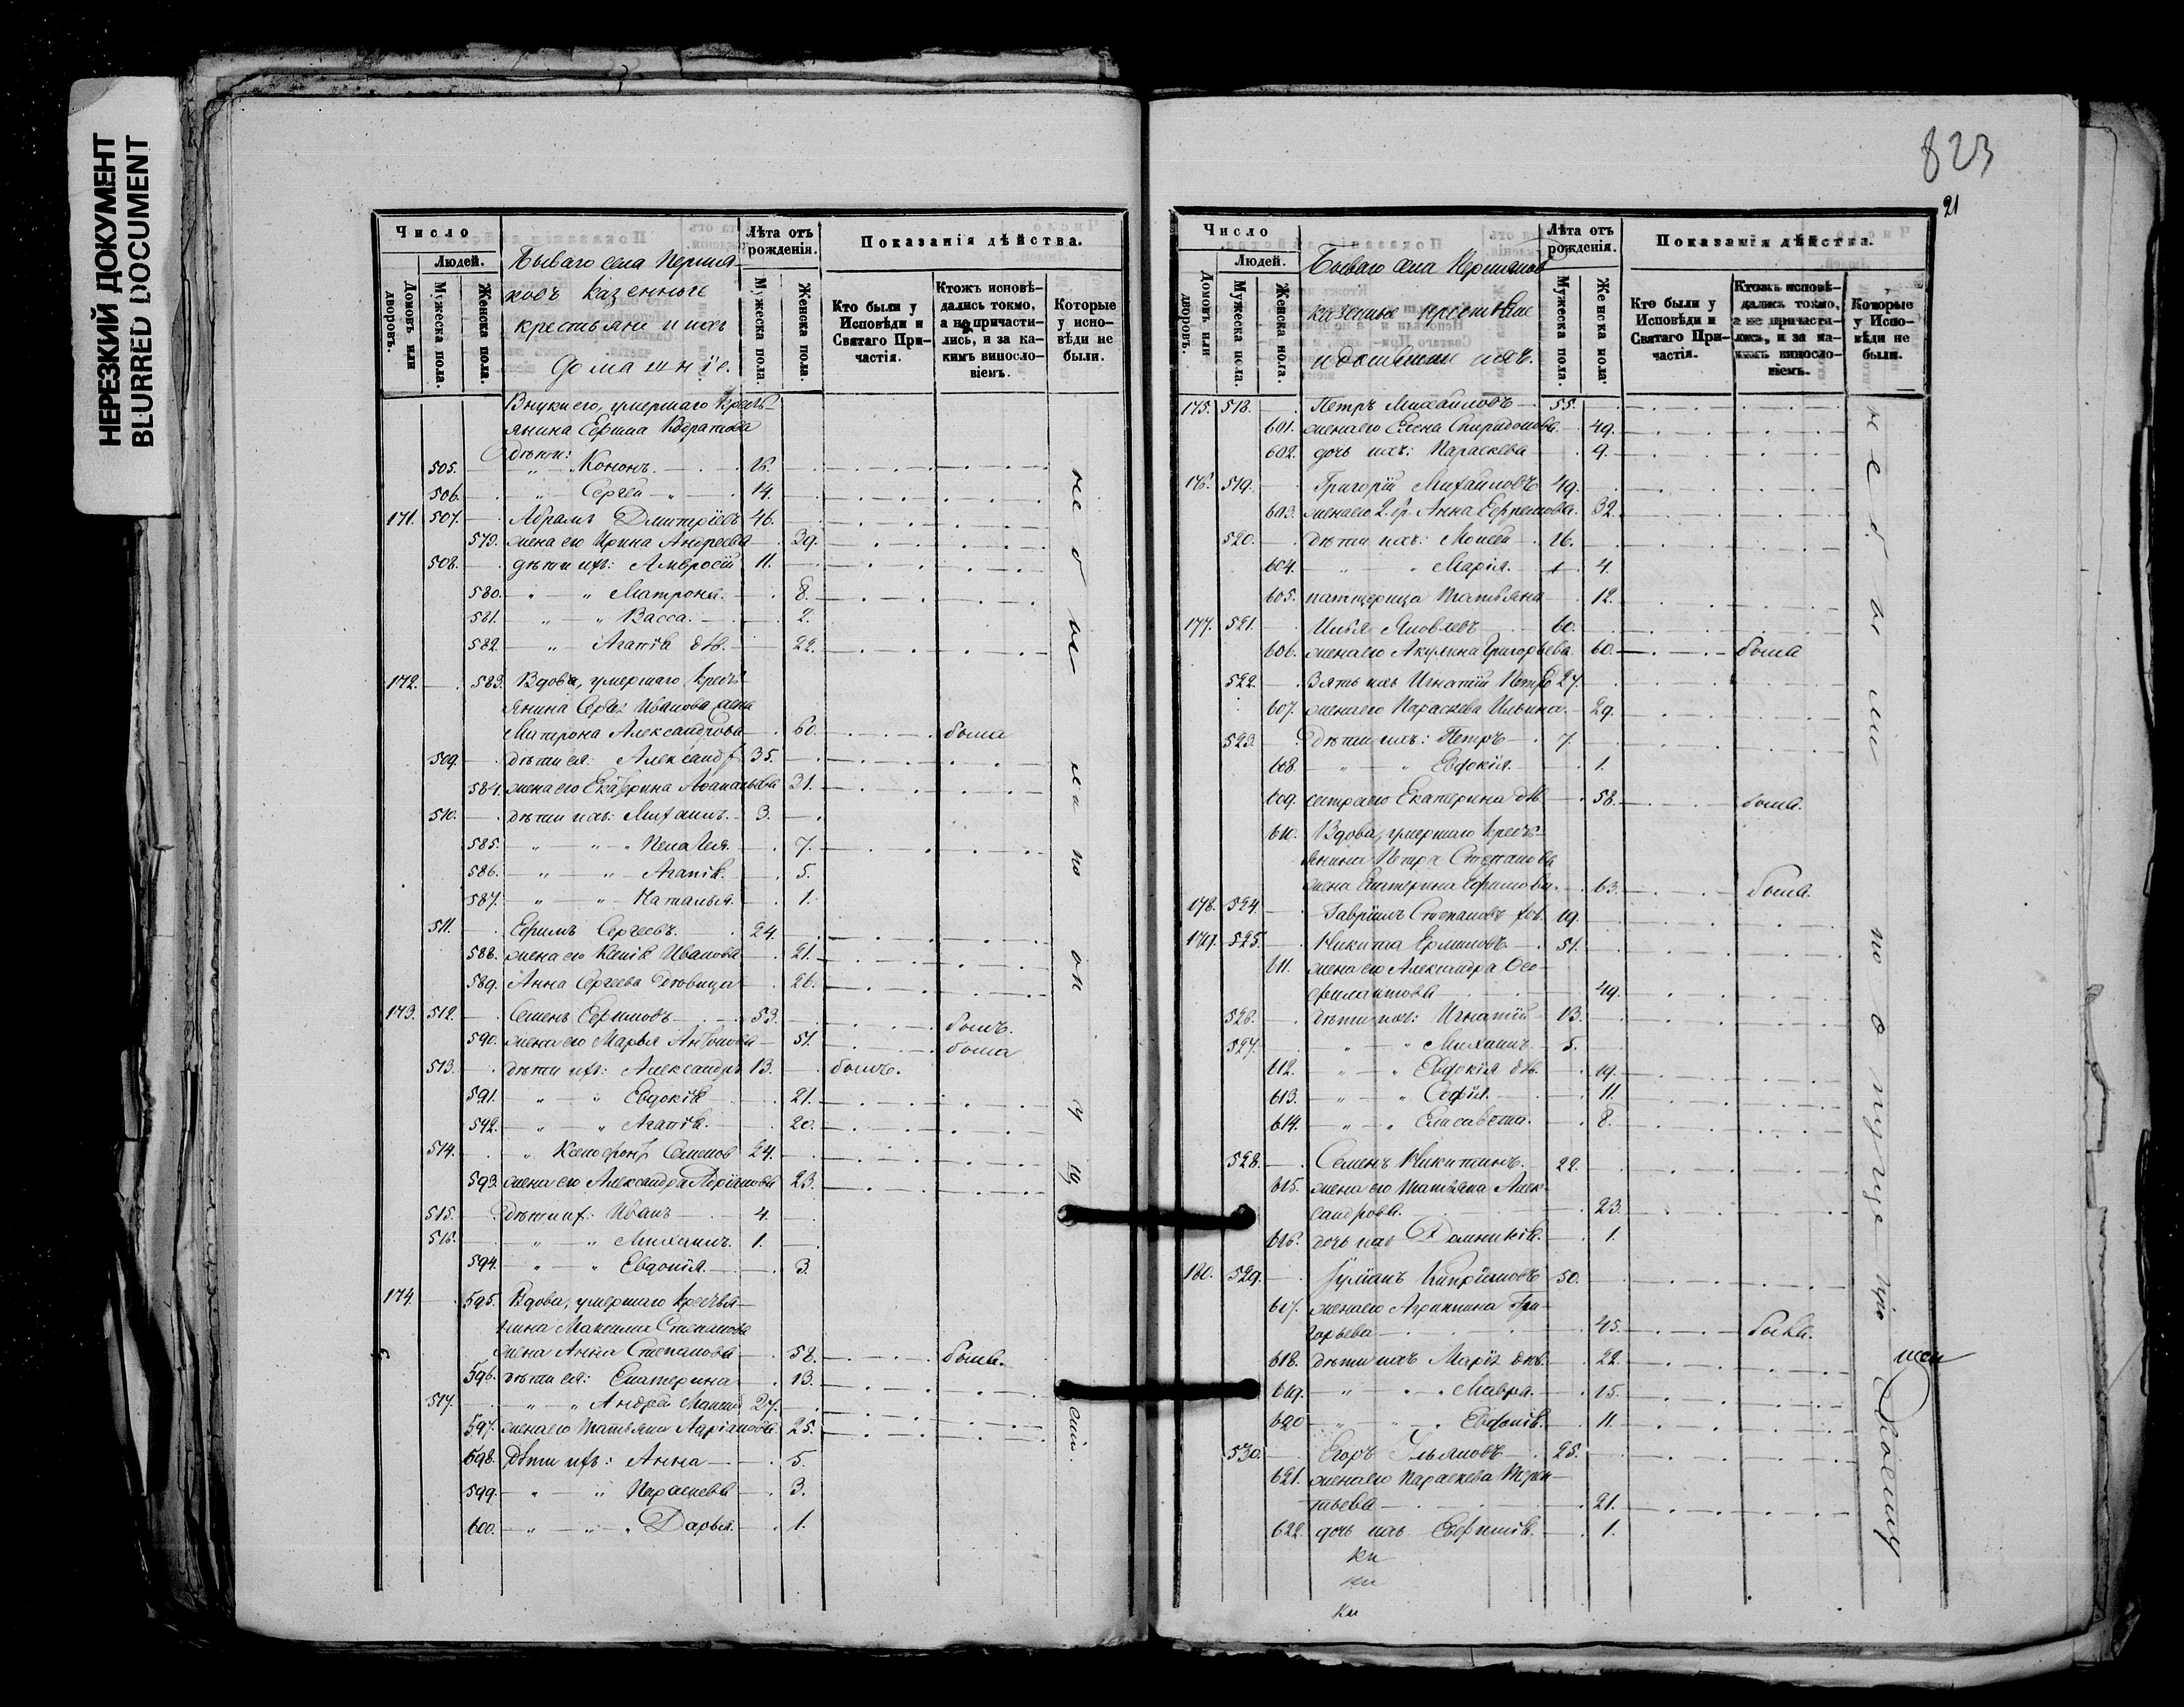 НЕРЕЗКИЙ ДОКУМЕНТ
BLURRED DOCUMENT
Число
Людей.
Домовъ или дворовъ.
Мужеска пола.
Женска пола.
Бываго села
казенные
крестьяне и ихъ
домашніе.
Лѣта отъ рожденія.
Мужеска пола.
Женска пола.
Показанія дѣйства.
Кто были у Исповѣди и Святаго Причастія.
Ктожъ исповѣдались токмо, а не причастились, и за какимъ винословіемъ.
Которые у исповѣди не были.
Внуки его, умершаго Кресть-
янина Ефима Кодратова
дѣти:
505. " Кононъ. 16.
506. " Сергей 14.
171. 507. Абрамъ Дмитріевъ 46.
579. жена его Ирина Андреева 39.
508. дѣти ихъ: Амвросій 11.
580. " " Матрона. 8.
581. " " Васса. 2.
582. " Агапія дѣв. 22.
172. 583. Вдова, умершаго Кресть
янина Сергѣя Иванова жена
Матрона Александрова 60. была
509. дѣти ея: Александръ 35.
584. жена его Екатерина 31.
510. дѣти ихъ: Михаилъ. 3.
585. " " Пелагея. 7.
586. " " Агапія. 5.
587. " " Наталья. 1.
511. Ефимъ Сергеевъ. 24.
588. жена его Ксенія Иванова 21.
589. Анна Сергеева дѣвица 26.
173. 512. Семенъ Ефимовъ 53. былъ.
590. жена его Марья Антонова 51. была
513. дѣти ихъ: Александръ 13. былъ.
591. " " Евдокія 21.
592. " " Агапія. 20.
514. " Ксенофонтъ Семенов 24.
593. жена его Александра Адріянова 23.
515. дѣти их: Иванъ 4.
516. " " Михаилъ. 1.
594. " " Евдокія. 3.
174. 595. Вдова, умершаго Крестья-
нина Максима Степанова
жена Анна Степанова 58. была.
596. дѣти ея: Екатерина 13.
517. " " Андрей 27.
597. жена его Татьяна Адріанова 25.
598. дѣти ихъ: Анна 5.
599. " " Параскева 3.
600. " " Дарья. 1.
не были
823
21
Число
Людей.
Домовъ или дворовъ.
Мужеска пола.
Женска пола.
Бываго села
казенные крестьяне
и домашніе ихъ.
Лѣта отъ рожденія.
Мужеска пола.
Женска пола.
Показанія дѣйства.
Кто были у Исповѣди и Святаго Причастія.
Ктожъ исповѣдались токмо, а не причастились, и за какимъ винословіемъ.
Которые у Исповѣди не были.
175. 518. Петръ Михайловъ 55.
601. жена его Елена Спиридонова. 49.
602. дочь ихъ: Параскева 9.
176. 519. Григорій Михайловъ 49.
603. жена его 2. бр. Анна 32.
520. дѣти ихъ: Моисей 16.
604. " " Марія. 4.
605. патщерица Татьяна 12.
177. 521. Илья Яковлевъ 60.
606. жена его Акулина Григорьева 60. была
522. Зять ихъ Игнатій 27.
607. жена его Параскева Ильина. 29.
523. Дѣти ихъ: Петръ 7.
608. " " Евдокія. 1.
609. сестра его Екатерина дѣв 58. была.
610. Вдова, умершаго Кресть-
янина Петра Степанова
жена Екатерина Ефимова. 63. была.
178. 524. Гавріилъ Степановъ 19.
179. 525. Никита Ермиловъ 51.
611. жена его Александра Фео-
филактова 49.
526. дѣти ихъ: Игнатій 13.
527. " " Михаилъ. 5.
612. " " Евдокія дѣв. 19.
613. " " Софія. 11.
614. " " Елисавета. 8.
528. Семенъ Никитинъ. 22.
615. жена его Татьяна Алек-
сандрова. 23.
616. дочь ихъ Домникія. 1.
180. 529. Кипріановъ 50.
617. жена его Агриппина Гри-
горьева 45. была.
618. дѣти ихъ Марія дѣв. 22.
619. " " Мавра. 15.
620 " " Евдокія. 11.
530. Егоръ 25.
621. жена его Параскева Терен-
тьева 21.
622. дочь ихъ Евфимія. 1.
не были по